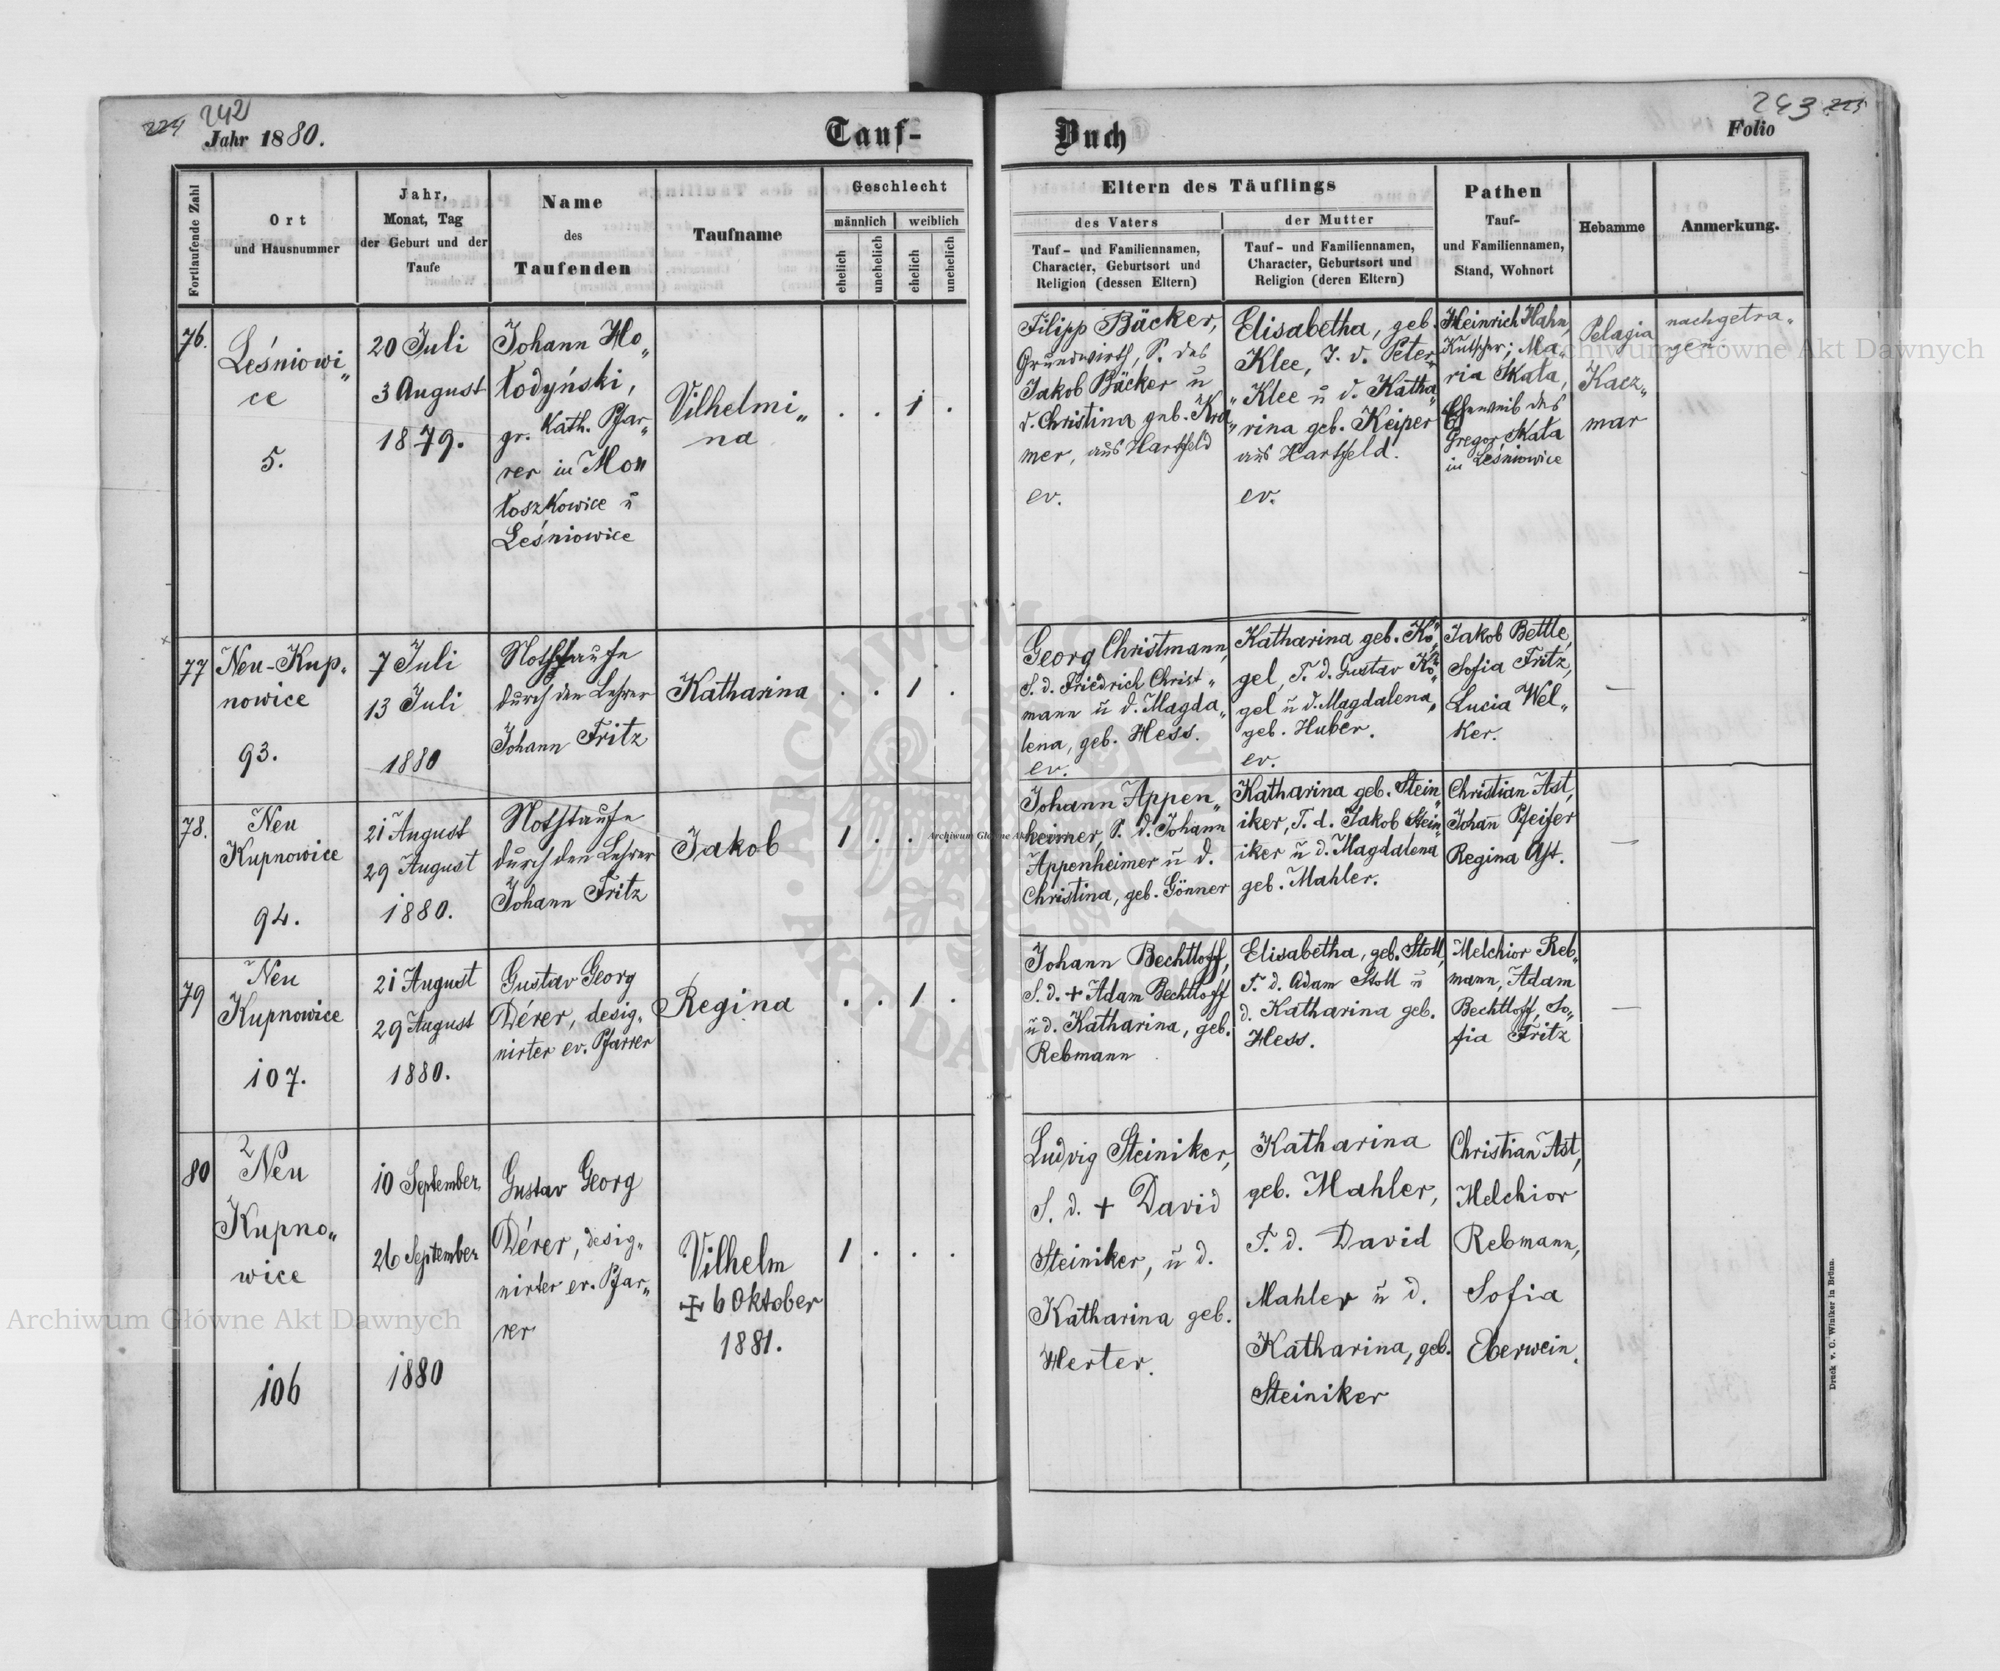 242
Jahr 1880.
Tauf-
Buch
243
Folio
Fortlaufende Zahl
Ort
und Hausnummer
Jahr,
Monat, Tag
der Geburt und der
Taufe
Name
des
Taufenden
Taufname
Geschlecht
männlich
weiblich
ehelich
unehelich
ehelich
unehelich
Eltern des Täuflings
des Vaters
Tauf- und Familiennamen,
Character, Geburtsort und
Religion (dessen Eltern)
der Mutter
Tauf- und Familiennamen,
Character, Geburtsort und
Religion (deren Eltern)
Pathen
Tauf-
und Familiennamen,
Stand, Wohnort
Hebamme
Anmerkung.
76.
Leśniowi„
ce
5.
20 Juli
3 August
1879.
Johann Mo„
łodyński,
gr. Kath. Pfar„
rer in Mo„
łoszkowice ŭ
Leśniowice
Vilhelmi„
na
. . 1 .
Filipp Bäcker,
Grundwirth, S. des
Jakob Bäcker ŭ
d. Christina geb. Kra„
mer, aus Hartfeld
ev.
Elisabetha, geb.
Klee, T. d. Peter
Klee ŭ d. Katha„
rina geb. Keiper
aus Hartfeld.
ev.
Heinrich Hahn,
Kutscher; Ma„
ria Skała,
Eheweib des
Gregor Skała
in Leśniowice
Pelagia
Kacz„
mar
nachgetra„
gen.
77
Neu-Kup„
nowice
93.
7 Juli
13 Juli
1880
Nothtaufe
durch den Lehrer
Johann Fritz
Katharina
. . 1 .
Georg Christmann,
S. d. Friedrich Christ„
mann ŭ d. Magda„
lena, geb. Hess.
ev.
Katharina geb. Kö„
gel, T. d. Gustav Kö„
gel ŭ d. Magdalena,
geb. Huber.
ev.
Jakob Bettle,
Sofia Fritz,
Lucia Wel„
ker.
—
78.
Neu
Kupnowice
94.
21 August
29 August
1880.
Nothtaufe
durch den Lehrer
Johann Fritz
Jakob
1 . . .
Johann Appen„
heimer, S. d. Johann
Appenheimer ŭ d.
Christina, geb. Gönner
Katharina geb. Stein„
iker, T. d. Jakob Stein„
iker ŭ d. Magdalena
geb. Mahler.
Christian Ast,
Johan̄ Pfeifer
Regina Ast.
—
79
Neu
Kupnowice
107.
21 August
29 August
1880.
Gustav Georg
Dérer, desig„
nirter ev. Pfarrer
Regina
. . 1 .
Johann Bechtloff,
S. d. + Adam Bechtloff
ŭ d. Katharina, geb.
Rebmann
Elisabetha, geb. Stoll,
T. d. Adam Stoll ŭ
d. Katharina geb.
Hess.
Melchior Reb„
mann, Adam
Bechtloff, So„
fia Fritz
—
80
Neu
Kupno„
wice
106
10 September
26 September
1880
Gustav Georg
Dérer, desig„
nirter ev. Pfar„
rer
Vilhelm
+ 6 Oktober
1881.
1 . . .
Ludvig Steiniker,
S. d. + David
Steiniker, ŭ d.
Katharina geb.
Herter.
Katharina
geb. Mahler,
T. d. David
Mahler ŭ d.
Katharina, geb.
Steiniker
Christian Ast,
Melchior
Rebmann,
Sofia
Eberwein.
Druck v. C. Winiker in Brünn.
Archiwum Główne Akt Dawnych
Archiwum Główne Akt Dawnych
ARCHIWUM GŁÓWNE AKT DAWNYCH